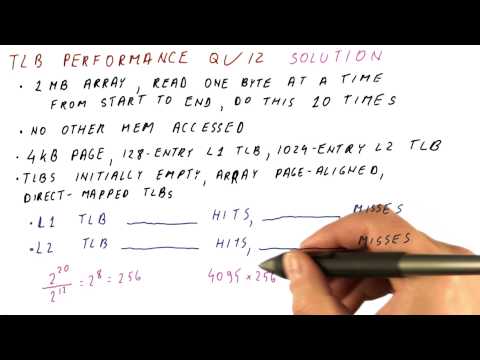 TLB PERFORMANCE QUIZ SOLUTION
• 2 MB ARRAY, READ ONE BYTE AT A TIME
FROM START TO END, DO THIS 10 TIMES
• NO OTHER MEM ACCESSED
• 4KB PAGE, 128-ENTRY L1 TLB, 1024-ENTRY L2 TLB
• TLBS INITIALLY EMPTY, ARRAY PAGE-ALIGNED,
DIRECT-MAPPED TLBS
• L1 TLB ______ HITS, ______ MISSES
• L2 TLB ______ HITS, ______ MISSES
2^20/2^12 = 2^8 = 256 4095 × 256